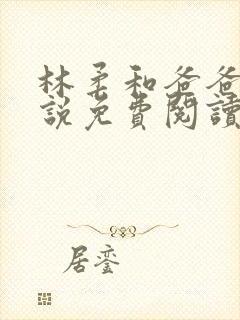 林柔和爸爸
說免費閱讀
居鸞